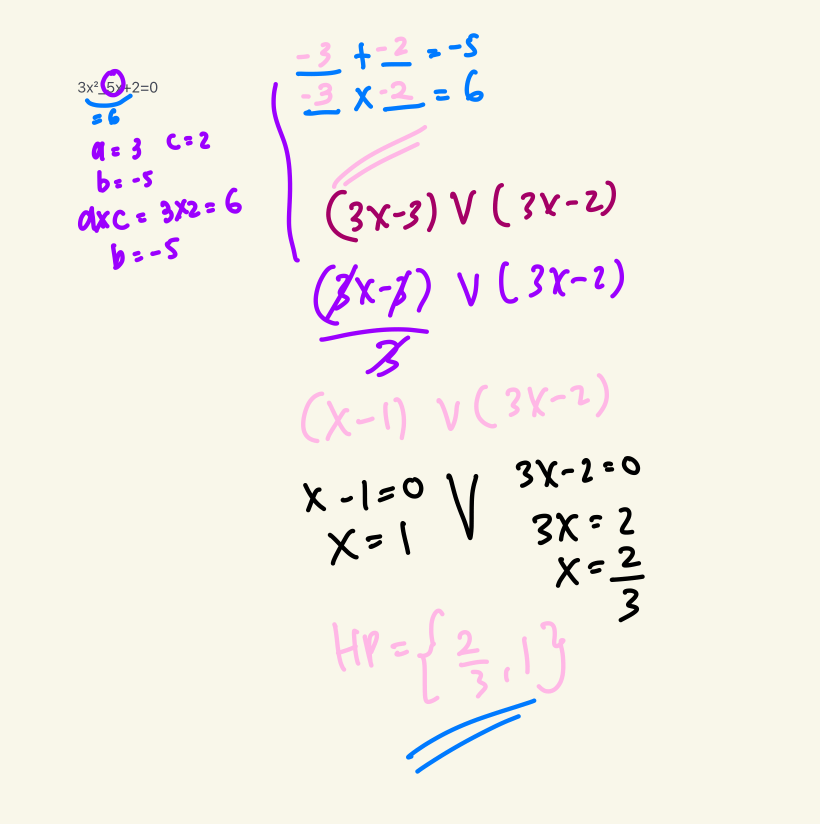 3x²_5x+2=0
= 6
a = 3 c = 2
b = -5
axc = 3x2 = 6
b = -5
-3 + -2 = -5
-3 x -2 = 6
(3x-3) V (3x-2)
(3x-3) V (3x-2)
3
(x-1) V (3x-2)
x -1 = 0 V 3x-2=0
x = 1 3x = 2
x = 2/3
HP = {2/3, 1}